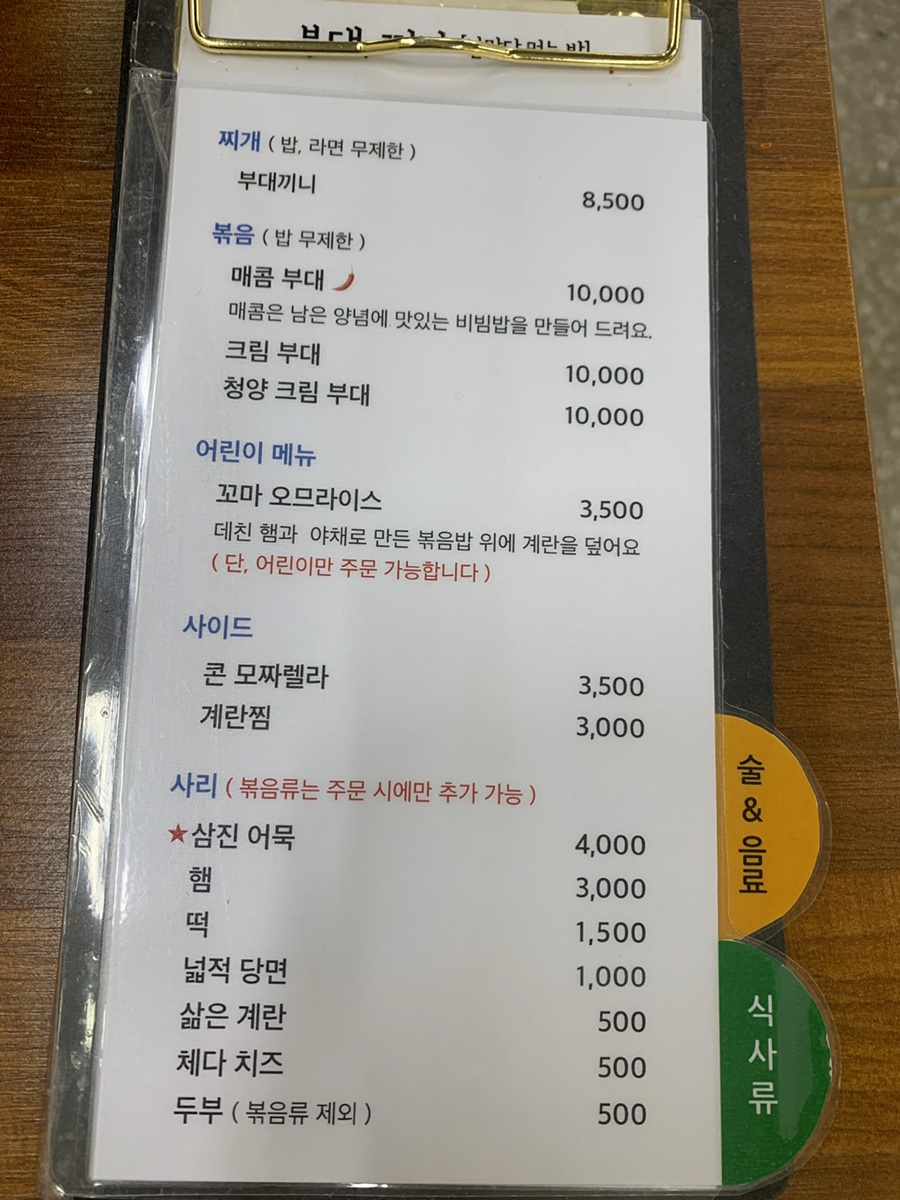 부대
찌개 ( 밥, 라면 무제한 )
부대끼니 8,500
볶음 ( 밥 무제한 )
매콤 부대 10,000
매콤은 남은 양념에 맛있는 비빔밥을 만들어 드려요.
크림 부대 10,000
청양 크림 부대 10,000
어린이 메뉴
꼬마 오므라이스 3,500
데친 햄과 야채로 만든 볶음밥 위에 계란을 덮어요
( 단, 어린이만 주문 가능합니다 )
사이드
콘 모짜렐라 3,500
계란찜 3,000
사리 ( 볶음류는 주문 시에만 추가 가능 )
★삼진 어묵 4,000
햄 3,000
떡 1,500
넓적 당면 1,000
삶은 계란 500
체다 치즈 500
두부 ( 볶음류 제외 ) 500
술 & 음료
식사류